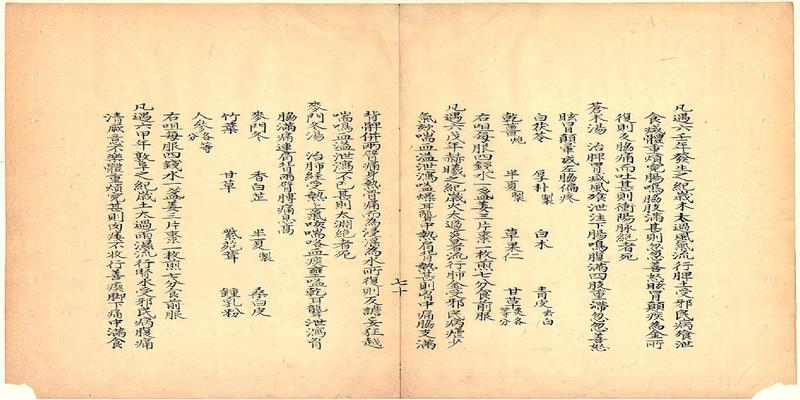 凡遇六壬年發生之紀歲木太過風氣流行脾土受邪民病飧泄
食減體重煩冤腸鳴脇腹滿甚則忽忽善怒眩冒顛疾為金所
復則反脇痛而吐甚則衝陽脉絕者死
蒼朮湯　治脾胃感風飧泄注下腸鳴腹滿四肢重滯忽忽善怒
眩冒顛暈或左脇偏疼
白茯苓　厚朴製　白朮　青皮去白
乾薑炮　半夏製　草果仁　甘草炙各等分
右咀每服四錢水一盞姜三片棗一枚煎七分食前服
凡遇六戊年赫曦之紀歲火太過炎暑流行肺金受邪民病瘧少
氣欬喘血溢泄瀉嗌燥耳聾中熱肩背熱甚則胷中痛脇支滿
七十
背髀併兩臂痛身熱骨痛而為浸淫為水所復則反譫妄狂越
喘鳴血溢泄瀉不已甚則太淵絕者死
麥門冬湯　治肺經受熱上氣咳喘咯血痰壅嗌乾耳聾泄瀉胷
脇滿痛連肩背兩臂膊痛息高
麥門冬　香白芷　半夏製　桑白皮
竹葉　甘草　紫菀茸　鍾乳粉
人參各等分
右咀每服四錢水一盞姜三片棗一枚煎七分食前服
凡遇六甲年敦阜之紀歲土太過雨濕流行腎水受邪民病腹痛
清厥意不樂體重煩冤甚則肉痿不收行善瘈脚下痛中滿食